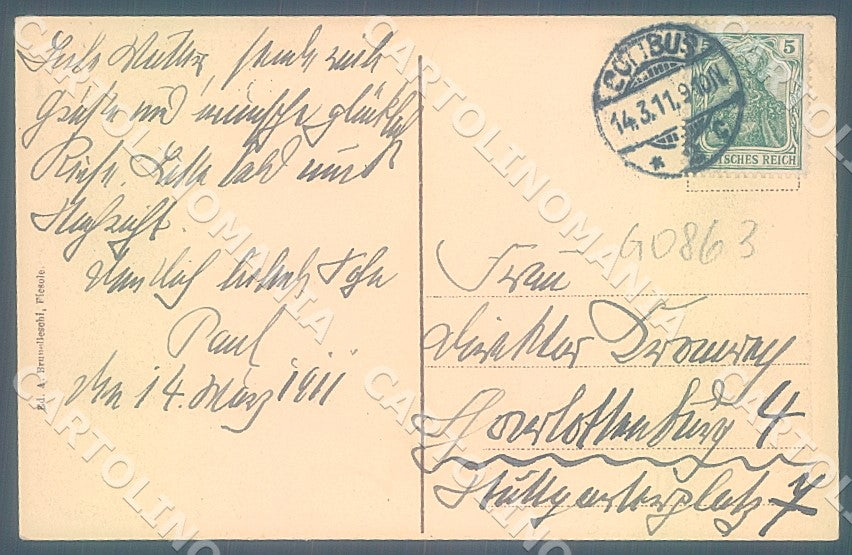 Liebe Mutter, sende viele
Grüße und wünsche glückliche
Bitte bald um
Nachricht.
Dein Dich liebender Sohn
Paul
den 14. März 1911
Ed. A. Brunelleschi, Fiesole.
COTTBUS
14.3.11.9-10N.
* c
5
DEUTSCHES REICH
G0863
Frau
Direktor
Charlottenburg 4
Stuttgarterplatz 7
CARTOLINOMANIA